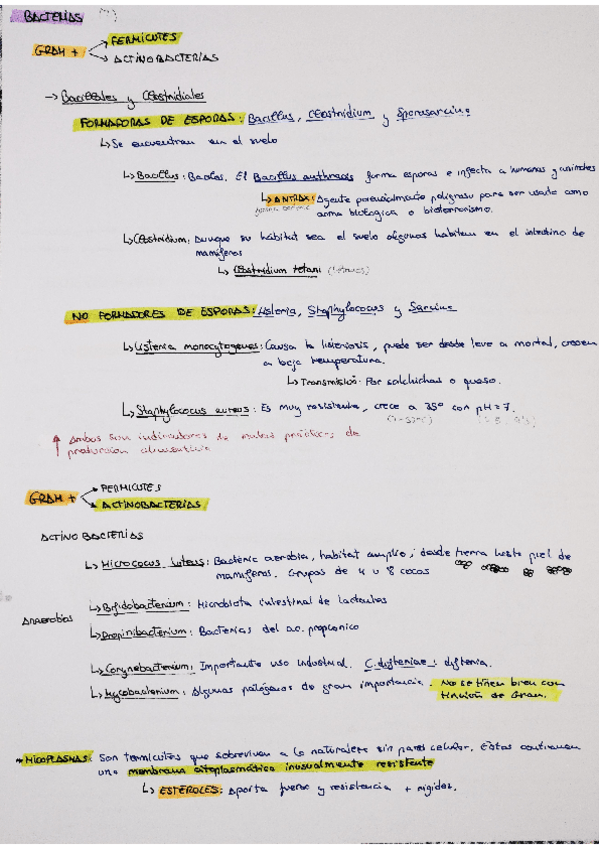 BACTERIAS
GRAM +
FERMICUTES
ACTINOBACTERIAS
→ Bacillales y Clostridiales
FORMADORAS DE ESPORAS: Bacillus, Clostridium y Sporosarcina
↳ Se encuentran en el suelo
↳ Bacillus: Bacilos. El Bacillus anthracis forma esporas e infecta a humanos y animales
↳ ANTRAX: Agente potencialmente peligroso para ser usado como
arma biológica o bioterrorismo.
↳ Clostridium: Aunque su hábitat sea el suelo algunas habitan en el intestino de
mamíferos
↳ Clostridium tetani (tétanos)
NO FORMADORES DE ESPORAS: Listeria, Staphylococus y Sarcina
↳ Listeria monocytogenes: Causa la listeriosis, puede ser desde leve a mortal, crecen
a baja temperatura.
↳ Transmisión: Por salchichas o queso.
↳ Staphylococcus aureus: Es muy resistente, crece a 35º con pH = 7.
↑ Ambos son indicadores de malas prácticas de
producción alimenticia
GRAM +
FERMICUTES
ACTINOBACTERIAS
ACTINO BACTERIAS
↳ Micrococus luteus: Bacteria aerobia, habitat amplio, desde tierra hasta piel de
mamíferos. Grupos de 4 u 8 cocos
Anaerobias
↳ Bifidobacterium: Microbiota intestinal de lactantes
↳ Propinibacterium: Bacterias del ac. propionico
↳ Corynebacterium: Importante uso industrial. C. difteriae: difteria.
↳ Mycobacterium: Algunas patógenas de gran importancia. No se tiñen bien con
tinción de Gram.
→ MICOPLASMAS: Son termicutes que sobreviven a la naturaleza sin pared celular. Estas contienen
una membrana citoplasmática inusualmente resistente
↳ ESTEROLES: Aporta fuerza y resistencia + rigidez.